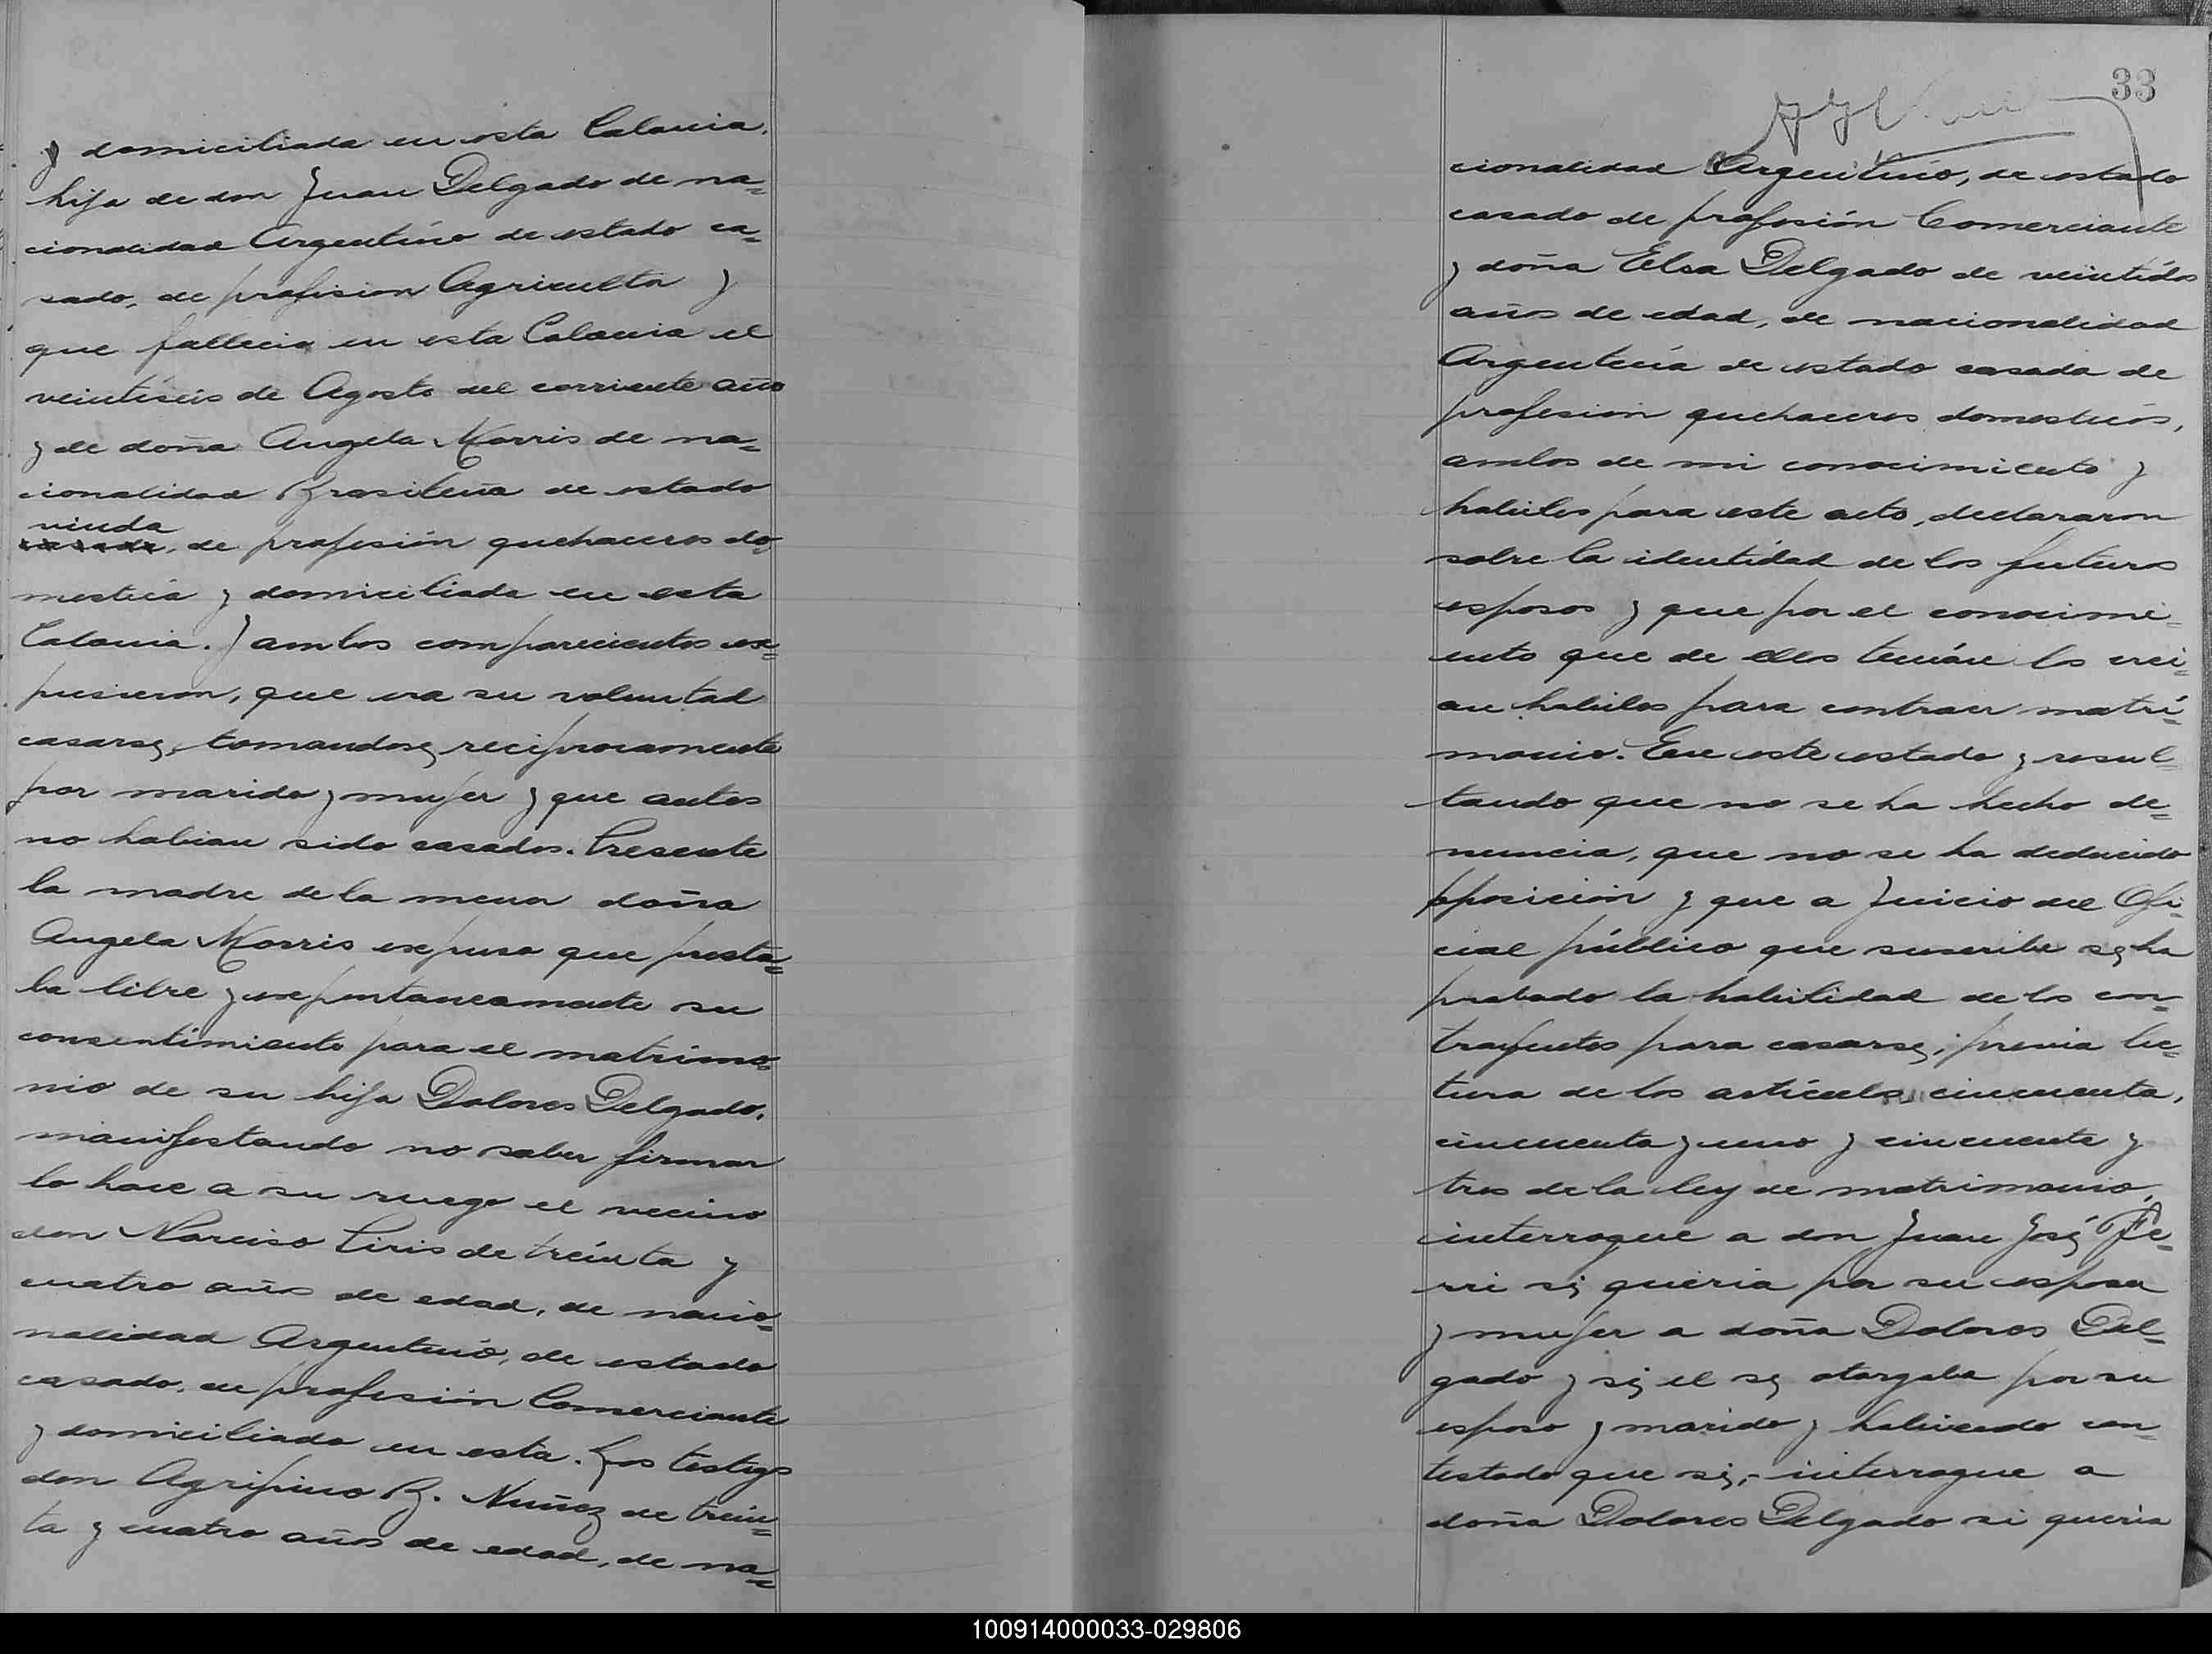 y domiciliada en esta Colonia,
hija de don Juan Delgado de na=
cionalidad Argentino de estado ca=
sado, de profision Agriculta y
que fallecio en esta Colonia el
veintiséis de Agosto del corriente año
y de doña Angela Morris de na=
cionalidad Brasileña de estado
viuda
casada, de profesión quehaceres do=
mestica y domiciliada en esta
Colonia. Y ambos comparecientes ex=
pusieron, que era su voluntad
casarse, tomandose reciprocamente
por marido y mujer y que antes
no habian sido casados. Presente
la madre de la menor doña
Angela Morris expuso que presta=
ba libre y expontaneamente su
consentimiento para el matrimo=
nio de su hija Dolores Delgado,
manifestando no saber firmar
lo hace a su ruego el vecino
don Narciso Piris de treinta y
cuatro años de edad, de nacio=
nalidad Argentino, de estado
casado, de profesión Comerciante
y domiciliado en esta. Los testigos
don Agripino B. Nuñez de trein=
ta y cuatro años de edad, de na=
33
cionalidad Argentino, de estado
casado de profesión Comerciante
y doña Elsa Delgado de veintidós
años de edad, de nacionalidad
Argentina de estado casada de
profesion quehaceres domesticos,
ambos de mi conocimiento y
habiles para este acto, declararon
sobre la identidad de los futuros
esposos y que por el conocimi=
ento que de ellos tenían los crei=
an habiles para contraer matri=
monio. En este estado y resul=
tando que no se ha hecho de=
nuncia, que no se ha deducido
oposición y que a juicio del Ofi=
cial público que suscribe se ha
probado la habilidad de los con=
trayentes para casarse; previa lec=
tura de los artículos cincuenta,
cincuenta y uno y cincuenta y
tres de la ley de matrimonio,
interrogue a don Juan José Fe=
rri si queria por su esposa
y mujer a doña Dolores Del=
gado y si el se otorgaba por su
esposo y marido y habiendo con=
testado que si;- interrogue a
doña Dolores Delgado si queria
100914000033-029806